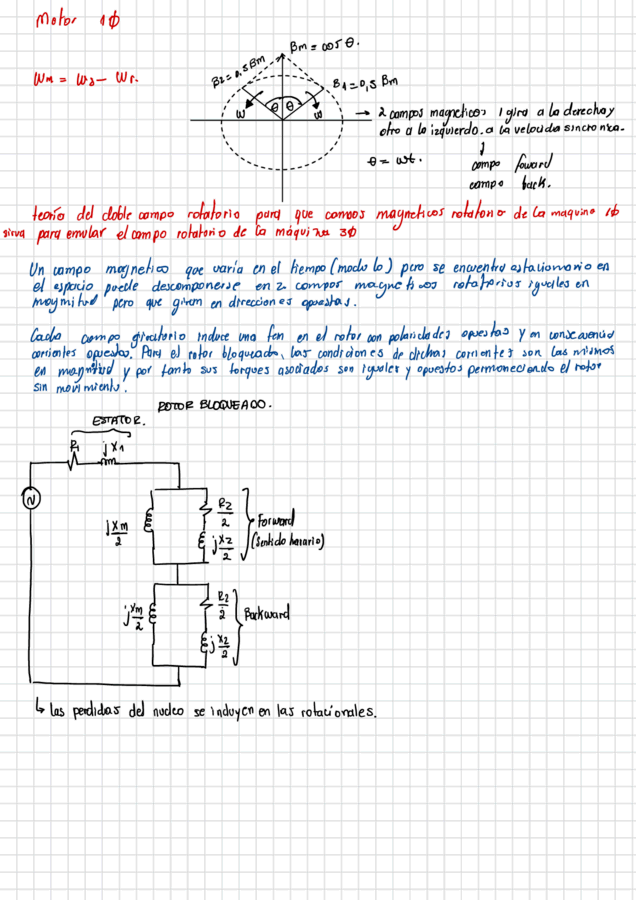 Motor 1ϕ
Bm = cos θ.
B2 = 0.5 Bm
B1 = 0,5 Bm
Wm = Ws - Wr.
w θ θ w
→ 2 campos magneticos 1 gira a la derecha y
otro a la izquierdo. a la velocida sincronica.
θ = wt.
↓
campo foward
campo back.
teoría del doble campo rotatorio para que campos magneticos rotatorio de la maquina 1ϕ
sirva para emular el campo rotatorio de la máquina 3ϕ
Un campo magnetico que varía en el tiempo (modulo) pero se encuentra estacionario en
el espacio puede descomponerse en 2 campos magneticos rotatorios iguales en
magnitud pero que giran en direcciones opuestas.
Cada campo giratorio induce una fem en el rotor con polaridades opuestas y en consecuencia
corrientes opuestas. Para el rotor bloqueado, las condiciones de dichas corrientes son las mismas
en magnitud y por tanto sus torques asociados son iguales y opuestos permaneciendo el rotor
sin movimiento.
ROTOR BLOQUEADO.
ESTATOR.
R1 jX1
jXm/2
R2/2
jX2/2
Forward
(Sentido horario)
jXm/2
R2/2
jX2/2
Backward
↳ las perdidas del nucleo se incluyen en las rotacionales.